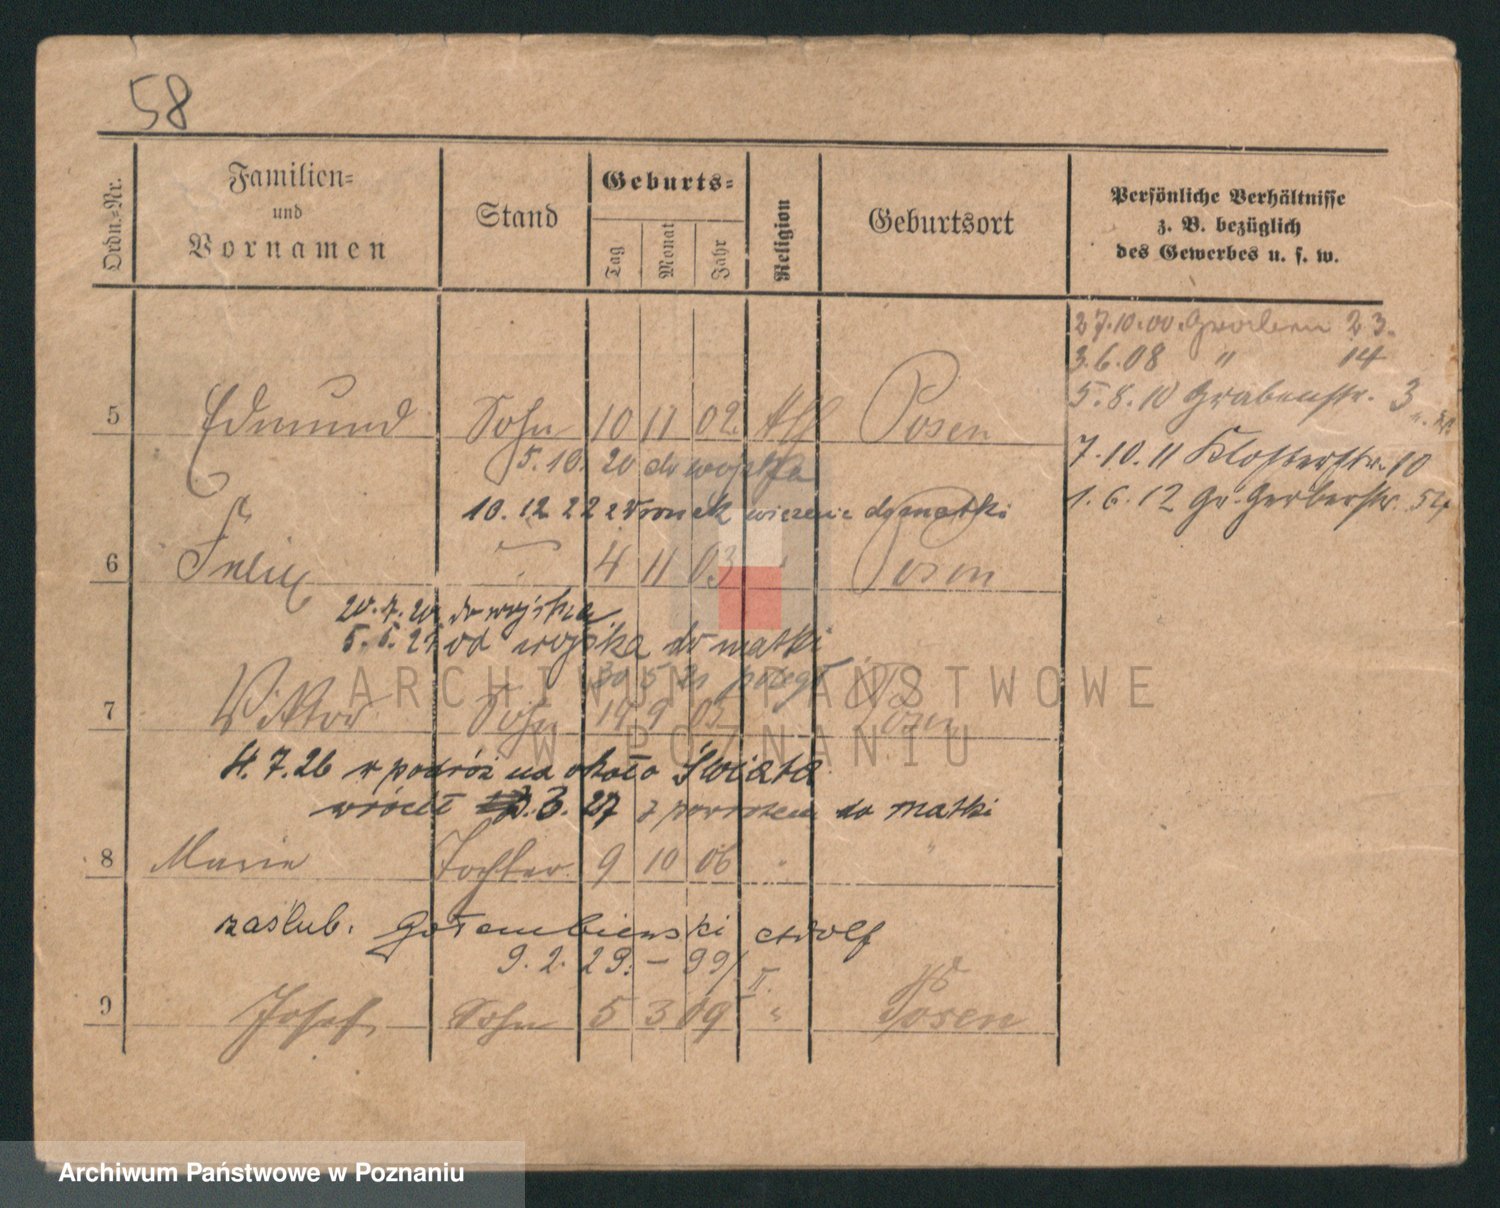 58
Ordn.-Nr.
Familien-
und
Vornamen
Stand
Geburts-
Tag
Monat
Jahr
Religion
Geburtsort
Persönliche Verhältnisse
z. B. bezüglich
des Gewerbes u. s. w.
27.10.00. Graben 23.
3.6.08 " 14
5.8.10 Grabenstr. 3
7.10.11 Klosterstr. 10
1.6.12 Gr. Gerberstr. 54
5 Edmund Sohn 10 11 02. Posen
5.10.20 do wojska
10.12.22 z Wronek więzienie do matki
6 Felix " 4 11 03 " Posen
20.7.20 do wojska
5.5.21 od wojska do matki
30 5 21 poległ
7 Viktor Sohn 14 9 05 " Posen
4.7.26 w podróż na około świata
wrócił 3.27 z powrotem do matki
8 Marie Tochter 9 10 06 " "
zaślub. Gołembiewski Adolf
9.2.29. – 99/II.
9 Josef Sohn 5 3 09 " Posen
ARCHIWUM PAŃSTWOWE
W POZNANIU
Archiwum Państwowe w Poznaniu